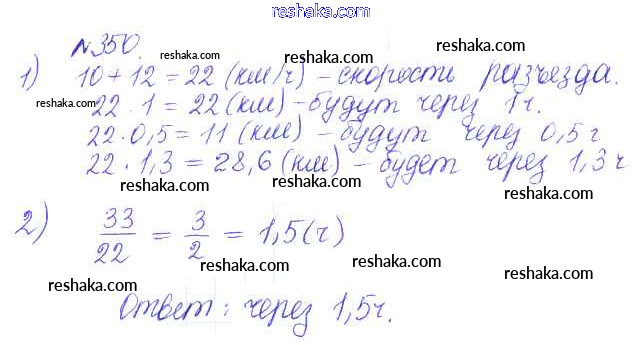 reshaka.com
№350.
reshaka.com reshaka.com
1) 10 + 12 = 22 (км/ч) – скорость разъезда.
reshaka.com reshaka.com
22 · 1 = 22 (км) – будут через 1 ч.
22 · 0,5 = 11 (км) – будут через 0,5 ч
reshaka.com reshaka.com
22 · 1,3 = 28,6 (км) – будет через 1,3 ч
reshaka.com reshaka.com
2) 33/22 = 3/2 = 1,5 (ч)
reshaka.com reshaka.com
reshaka.com reshaka.com
Ответ: через 1,5 ч.
reshaka.com